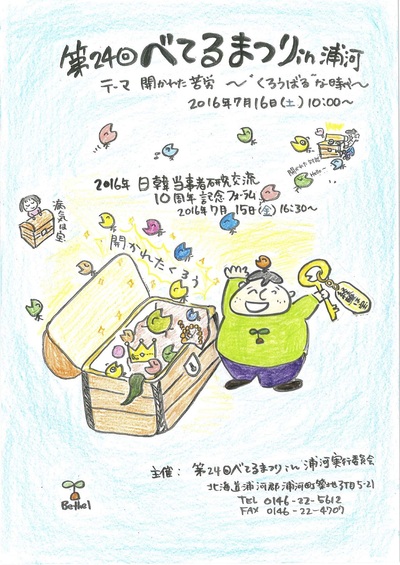 第24回べてるまつりin浦河
テーマ 開かれた苦労 ～"くろうばる"な時代～
2016年7月16日(土) 10:00～
2016年 日韓当事者研究交流
10周年記念フォーラム
2016年7月 15日(金) 16:30～
病気は宝
開かれたくろう
主催: 第24回べてるまつりin浦河実行委員会
北海道浦河郡浦河町築地3丁目5-21
TEL 0146-22-5612
FAX 0146-22-4707
Bethel